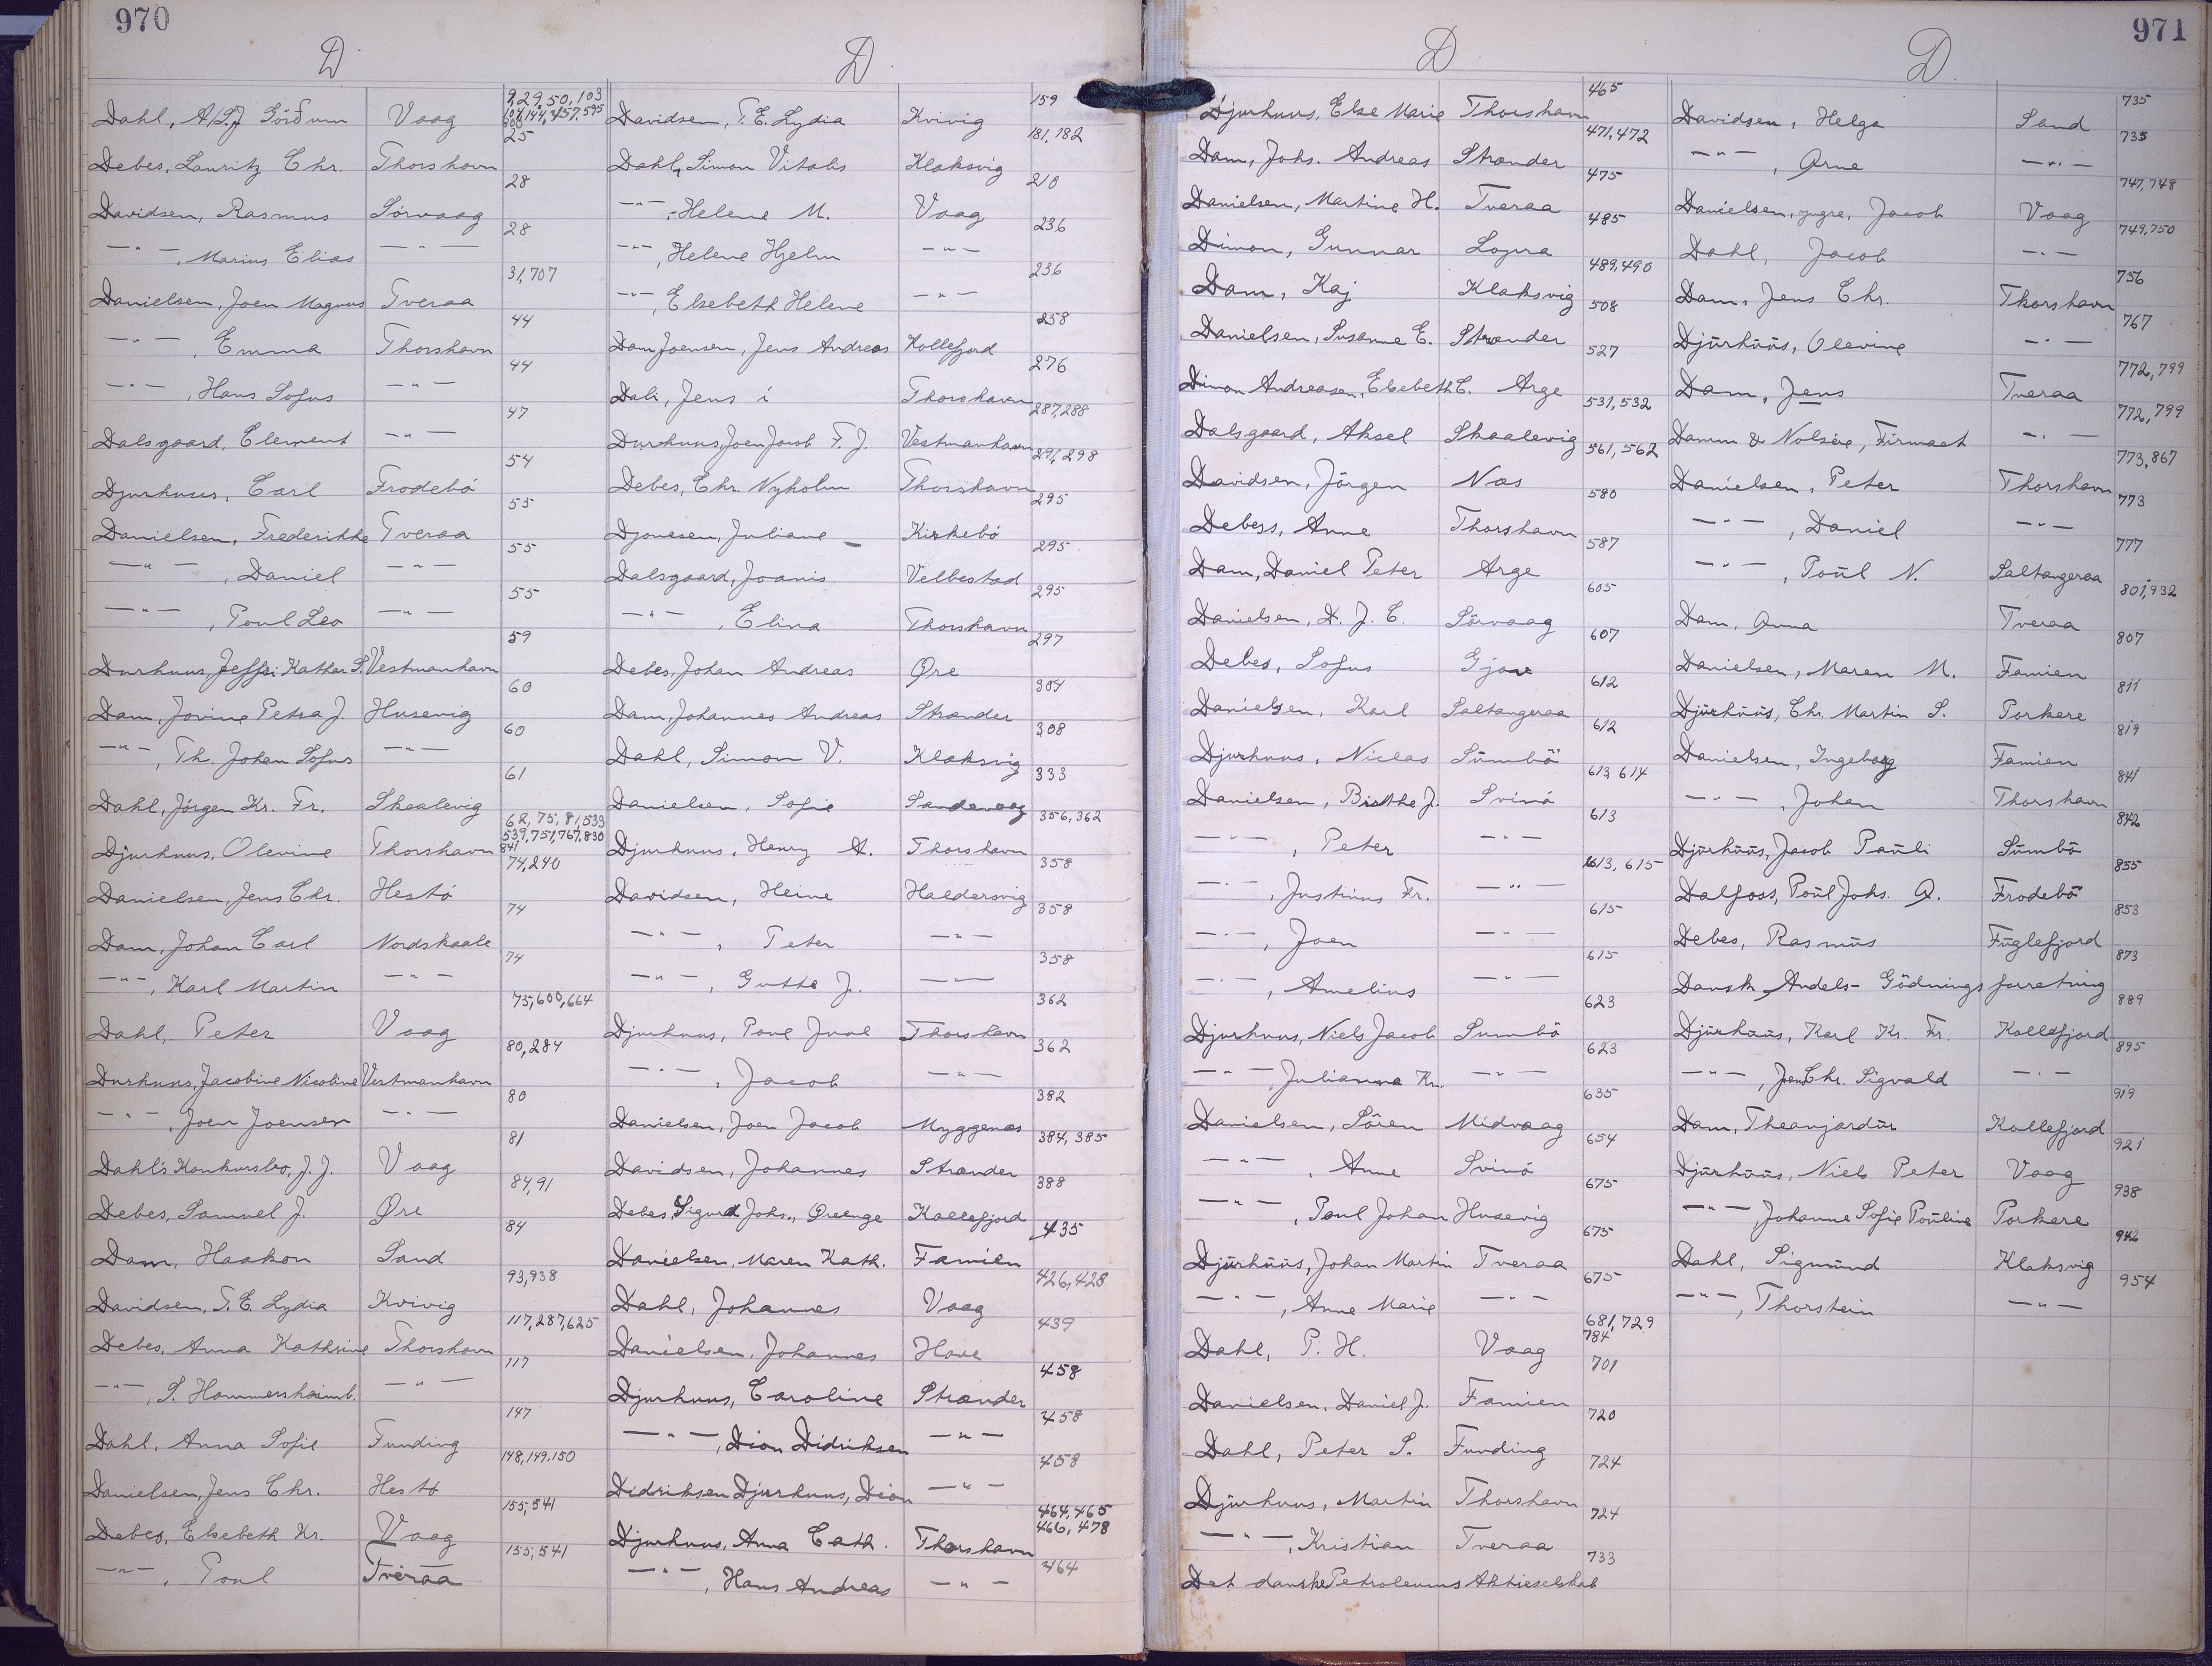 970
D
Dahl, A/S J Górðum Vaag 9,29,50,103
Debes, Lauritz Chr. Thorshavn 25
Davidsen, Rasmus Sórvaag 28
—"—, Marius Elias —"— 28
Danielsen, Joen Magnus Tveraa 31,707
—"—, Emma Thorshavn 44
—"—, Hans Sofus —"— 44
Dalsgaard, Clement —"— 47
Djurhuus, Carl Frodebó 54
Danielsen, Frederikke Tveraa 55
—"—, Daniel —"— 55
—"—, Poul Leo —"— 55
Durhuus, Jeffri Kathar S. Vestmanhavn 59
Dam, Jovine Petra J. Husevig 60
—"—, Th. Johan Sofus —"— 60
Dahl, Jórgen Kr. Fr. Skaalevig 61
Djurhuus, Olevine Thorshavn 62,75,81,533
539,751,767,830
841
Danielsen, Jens Chr. Hestó 74,240
Dam, Johan Carl Nordskaale 74
—"—, Karl Martin —"— 74
Dahl, Peter Vaag 75,600,664
Durhuus, Jacobine Nicoline Vestmanhavn 80,284
—"—, Joen Joensen —"— 80
Dahl's Konkursbo, J. J. Vaag 81
Debes, Samuel J. Øre 84,91
Dam, Haakon Sand 84
Davidsen, T. E. Lydia Kvivig 93,938
Debes, Anna Kathrine Thorshavn 117,287,625
—"—, S. Hammershaimb. —"— 117
Dahl, Anna Sofie Funding 147
Danielsen, Jens Chr. Hestó 148,149,150
Debes, Elsebeth Kr. Vaag 155,541
—"—, Poul Tveraa 155,541
D
Davidsen, T. E. Lydia Kvivig 159
Dahl, Simon Vitalis Klaksvig 181,182
—"—, Helene M. Vaag 210
—"—, Helene Hjelm —"— 236
—"—, Elsebeth Helene —"— 236
Dam Joensen, Jens Andreas Kollefjord 258
Dali, Jens í Thorshavn 276
Durhuus, Joen Jacob F. J. Vestmanhavn 287,288
Debes, Chr. Nyholm Thorshavn 291,298
Djonesen, Juliane Kirkebó 295
Dalsgaard, Joanis Velbestad 295
—"—, Elina Thorshavn 295
Debes, Johan Andreas Øre 297
Dam, Johannes Andreas Strander 304
Dahl, Simon V. Klaksvig 308
Danielsen, Sofie Sandevaag 333
Djurhuus, Henry A. Thorshavn 356,362
Davidsen, Heine Haldersvig 358
—"—, Peter —"— 358
—"—, Gutte J. —"— 358
Djurhuus, Poul Juul Thorshavn 362
—"—, Jacob —"— 362
Danielsen, Joen Jacob Myggenæs 382
Davidsen, Johannes Strander 384, 385
Debes, Sigurd Johs., Øreenge Kollefjord 388
Danielsen, Maren Kath. Famien 435
Dahl, Johannes Vaag 426,428
Danielsen, Johannes Hove 439
Djurhuus, Caroline Strander 458
—"—, Dion Didriksen —"— 458
Didriksen Djurhuus, Dion —"— 458
Djurhuus, Anna Cath. Thorshavn 464,465
466, 478
—"—, Hans Andreas —"— 464
971
D
Djurhuus, Else Marie Thorshavn 465
Dam, Johs. Andreas Strander 471,472
Danielsen, Martine H. Tveraa 475
Dimon, Gunnar Lopra 485
Dam, Kaj Klaksvig 489,490
Danielsen, Susanne E. Strander 508
Dimon Andreasen, Elsebeth C. Arge 527
Dalsgaard, Aksel Skaalevig 531,532
Davidsen, Jörgen Næs 561,562
Debess, Anne Thorshavn 580
Dam, Daniel Peter Arge 587
Danielsen, D. J. C. Sörvaag 605
Debes, Sofus Gjove 607
Danielsen, Karl Saltangeraa 612
Djurhuus, Niclas Sümbö 612
Danielsen, Birthe J. Svinó 613,614
—"—, Peter —"— 613
—"—, Justinus Fr. —"— 613, 615
—"—, Joen —"— 615
—"—, Amelius —"— 615
Djurhuus, Niels Jacob Sumbö 623
—"—, Julianna Kr. —"— 623
Danielsen, Sören Midvaag 635
—"—, Anne Svinó 654
—"—, Poul Johan Husevig 675
Djürhüüs, Johan Martin Tveraa 675
—"—, Anne Marie —"— 675
Dahl, P. H. Vaag 681,729
784
Danielsen, Daniel J. Famien 701
Dahl, Peter S. Funding 720
Djurhuus, Martin Thorshavn 724
—"—, Kristian Tveraa 724
Det danske Petroleums Aktieselskab 733
D
Davidsen, Helge Sand 735
—"—, Arne —"— 735
Danielsen, yngre, Jacob Vaag 747,748
Dahl, Jacob —"— 749,750
Dam, Jens Chr. Thorshavn 756
Djürhüüs, Olevine —"— 767
Dam, Jens Tveraa 772,799
Damm & Nolsöe, Firmaet —"— 772,799
Danielsen, Peter Thorshavn 773,867
—"—, Daniel —"— 773
—"—, Poül N. Saltangeraa 777
Dam, Anna Tveraa 801,932
Danielsen, Maren M. Famien 807
Djürhüüs, Chr. Martin S. Porkere 811
Danielsen, Ingeborg Famien 819
—"—, Johan Thorshavn 841
Djürhüüs, Jacob Paüli Sümbö 842
Dalfoss, Poül Johs. A. Frodebö 855
Debes, Rasmüs Füglefjord 853
Dansk Andels- Gödnings forretning 873
Djürhüüs, Karl Kr. Fr. Kollefjord 889
—"—, Jens Chr. Sigvald —"— 895
Dam, Theanjardür Kollefjord 919
Djürhüüs, Niels Peter Vaag 921
—"—, Johanne Sofie Poüline Porkere 938
Dahl, Sigmünd Klaksvig 942
—"—, Thorstein —"— 954